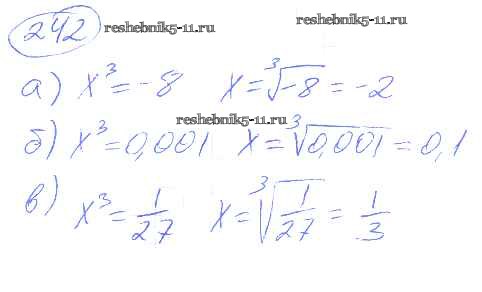 242 reshebnik5-11.ru reshebnik5-11.ru
а) x³ = -8 x = ∛-8 = -2
reshebnik5-11.ru
б) x³ = 0,001 x = ∛0,001 = 0,1
в) x³ = 1/27 x = ∛1/27 = 1/3